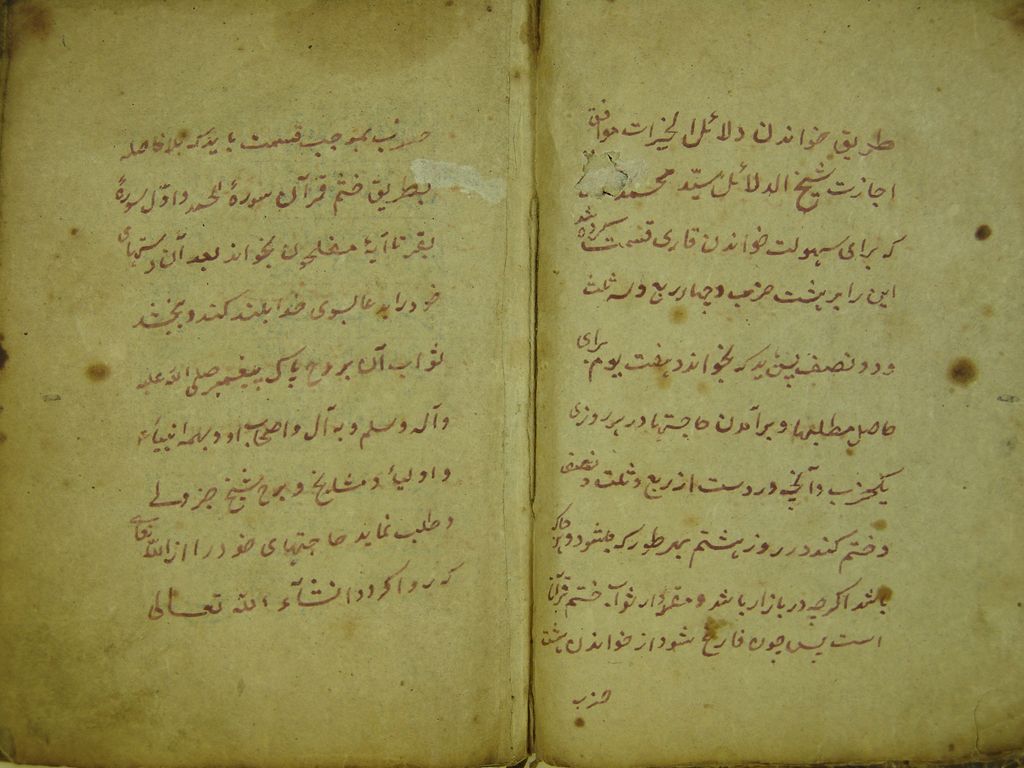 طریق خواندن دلائل الخیرات موافق
اجازت شیخ الدلائل سیّد محمد
که برای سهولت خواندن قاری قسمت کرده شد
این را بر هشت حزب و چهار ربع و سه ثلث
و دو نصف پس باید که بخواند هفت یوم برای
حاصل مطلبها و برآمدن حاجتها در هر روزی
یکحزب و آنچه در دست از ربع و ثلث و نصف
و ختم کند در روز هشتم بهر طور که باشد و هر جا که
باشد اگرچه در بازار باشد و مقدار ثواب ختم قرآن
است پس چون فارغ شود از خواندن هشت
حزب
حزب بموجب قسمت باید که بلا فاصله
بطریق ختم قرآن سورۀ الحمد و اوّل سورۀ
بقر تا آیۀ مفلحون بخواند بعد آن دستهای
خود را بدعا بسوی خدا بلند کند و بخشد
ثواب آن بروح پاک پیغمبر صلی الله علیه
و آله و سلم و به آل و اصحاب او و بهمه انبیاء
و اولیاء و مشایخ و بروح شیخ جزولے
و طلب نماید حاجتهای خود را از الله تعالے
که روا گردد انشآء الله تعالی